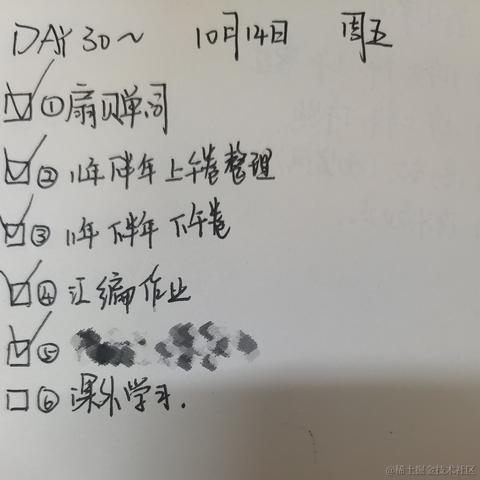 DAY 30~ 10月14日 周五
①扇贝单词
②11年下半年上午卷整理
③11年下半年下午卷
④汇编作业
⑤
⑥课外学习.
@稀土掘金技术社区